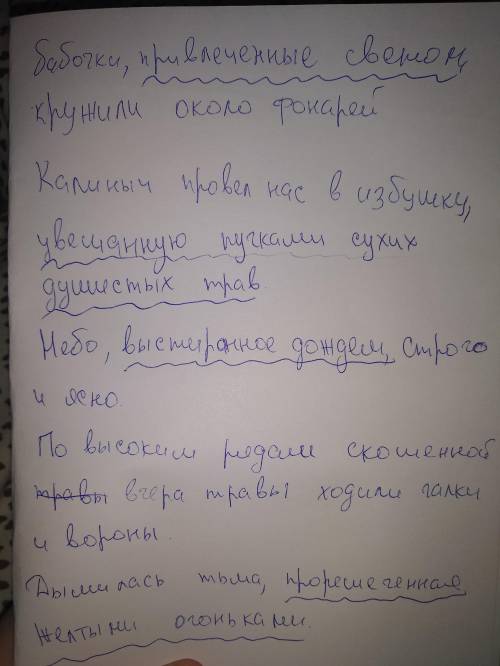 бабочки, привлеченные светом,
кружили около фонарей
Калиныч провел нас в избушку,
увешанную пучками сухих
душистых трав.
Небо, выстиранное дождем, строго
и ясно.
По высоким рядам скошенной
травы вчера травы ходили галки
и вороны.
Дымилась тьма, прорешеченная
желтыми огоньками.